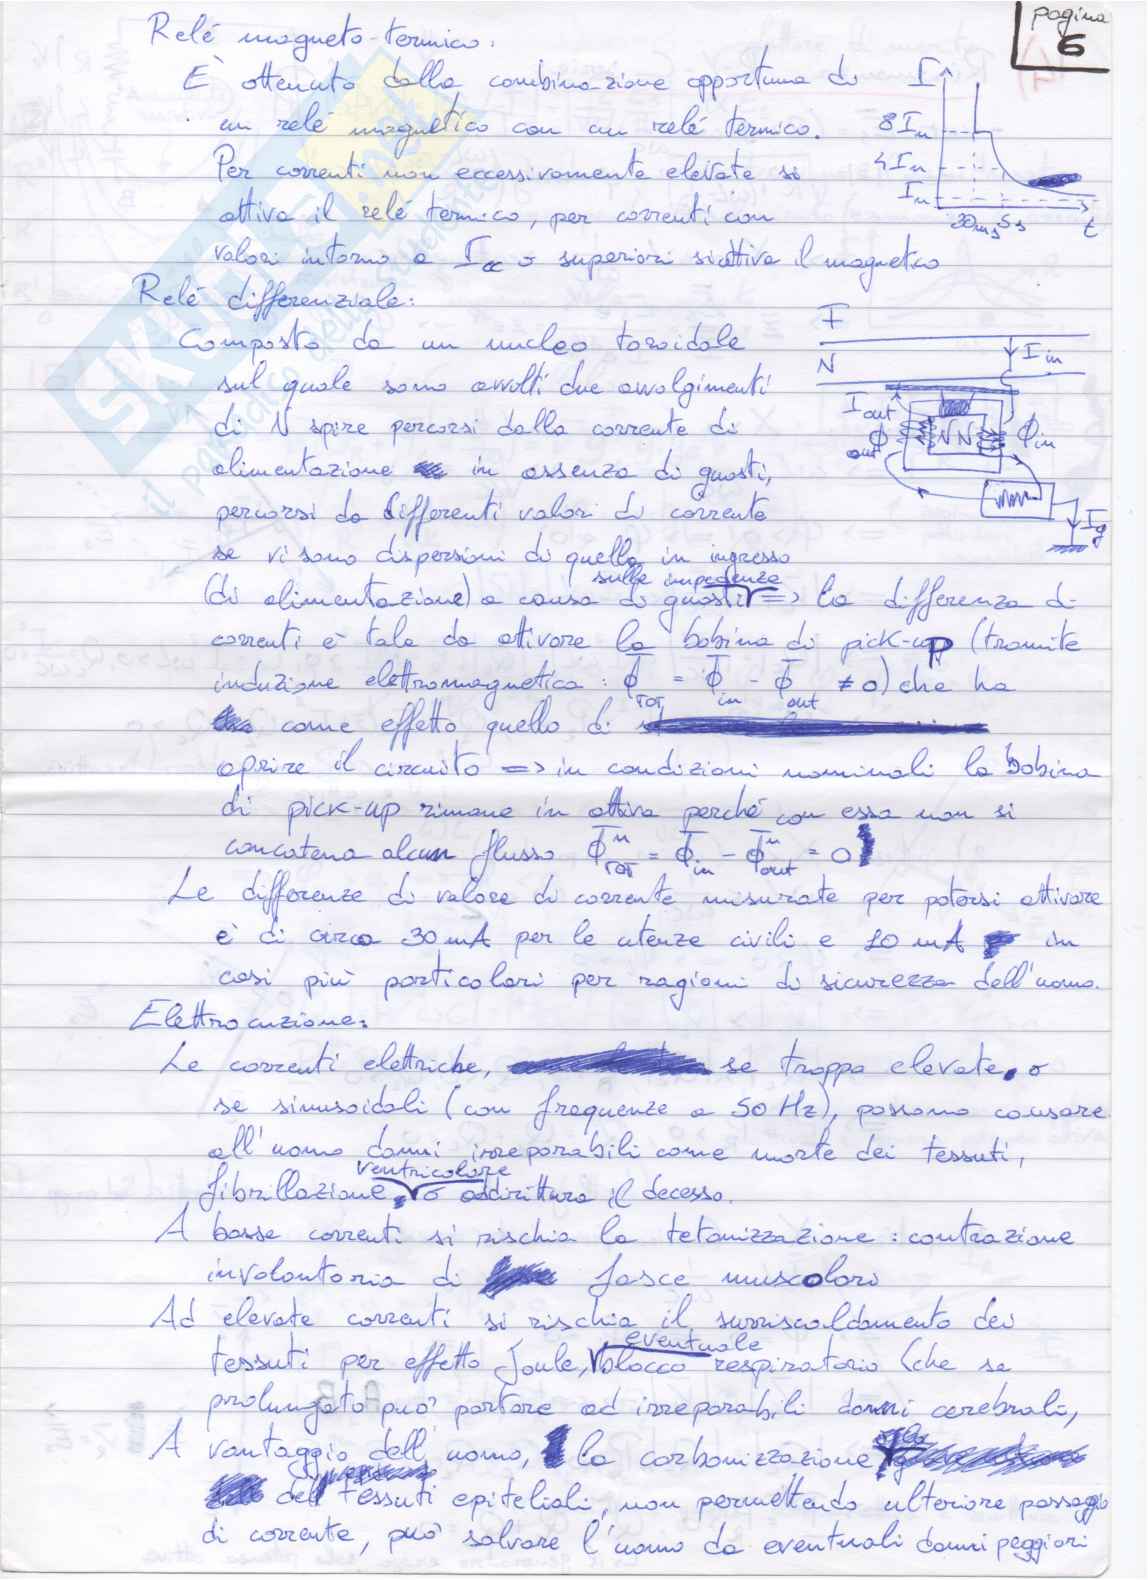 pagina
6
Relé magneto-termico:
È ottenuto dalla combinazione opportuna di
un relé magnetico con un relé termico.
Per correnti non eccessivamente elevate si
attiva il relé termico, per correnti con
valori intorno a Icc o superiori si attiva il magnetico
I
8In
4In
In
20ms 5s
t
Relé differenziale:
Composto da un nucleo toroidale
sul quale sono avvolti due avvolgimenti
di N spire percorsi dalla corrente di
alimentazione in assenza di guasti,
percorsi da differenti valori di corrente
se vi sono dispersioni di quella in ingresso
sulle impedenze
(di alimentazione) a causa di guasti => La differenza di
correnti è tale da attivare la bobina di pick-up (tramite
induzione elettromagnetica: Φ̅TOT = Φ̅in - Φ̅out ≠ 0) che ha
come effetto quello di
aprire il circuito => in condizioni nominali la bobina
di pick-up rimane in attiva perché con essa non si
concatena alcun flusso Φ̅ⁿTOT = Φ̅in - Φ̅ⁿout = 0
F
N
Iin
Iout
Φout
N N
Φin
Ig
Le differenze di valore di corrente misurate per potersi attivare
è di circa 30 mA per le utenze civili e 10 mA in
casi più particolari per ragioni di sicurezza dell'uomo.
Elettrocuzione:
Le correnti elettriche, se troppo elevate o
se sinusoidali (con frequenze a 50 Hz), possono causare
all'uomo danni irreparabili come morte dei tessuti,
ventricolare
fibrillazione, o addirittura il decesso.
A basse correnti si rischia la tetanizzazione: contrazione
involontaria di fasce muscolari
Ad elevate correnti si rischia il surriscaldamento dei
eventuale
tessuti per effetto Joule, blocco respiratorio (che se
prolungato può portare ad irreparabili danni cerebrali,
A vantaggio dell'uomo, la carbonizzazione
tessuti epiteliali, non permettendo ulteriore passaggio
di corrente, può salvare l'uomo da eventuali danni peggiori
SKUOLA.net
il paradiso dello studente